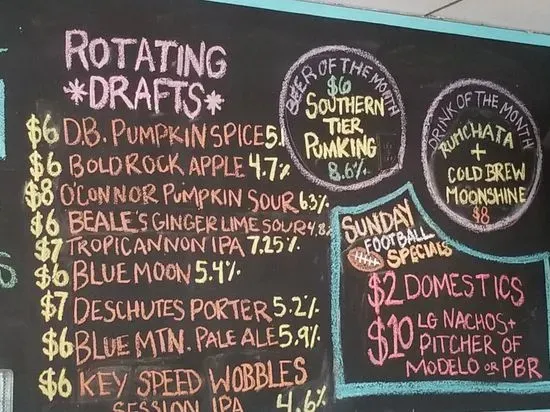 ROTATING
*DRAFTS*
$6 D.B. PUMPKIN SPICE 5.
$6 BOLD ROCK APPLE 4.7%
$8 O'CONNOR PUMPKIN SOUR 6.3%
$6 BEALE'S GINGER LIME SOUR 4.8%
$7 TROPICANNON IPA 7.25%
$6 BLUE MOON 5.4%
$7 DESCHUTES PORTER 5.2%
$6 BLUE MTN. PALE ALE 5.9%
$6 KEY SPEED WOBBLES
SESSION IPA 4.6%
BEER OF THE MONTH
$6
SOUTHERN
TIER
PUMKING
8.6%
DRINK OF THE MONTH
RUMCHATA
+
COLD BREW
MOONSHINE
$8
SUNDAY
FOOTBALL
SPECIALS
$2 DOMESTICS
$10 LG NACHOS +
PITCHER OF
MODELO OR PBR